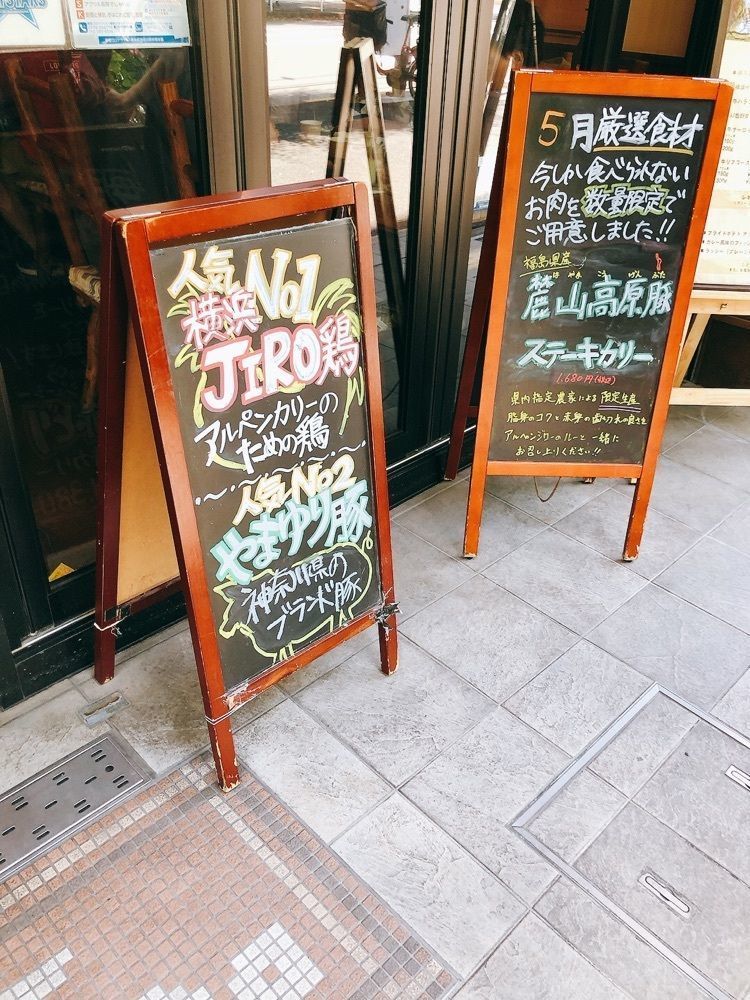 人気No1
横浜
JIRO鶏
アルペンカリーの
ための鶏
人気No2
やまゆり豚
神奈川県の
ブランド豚
5月厳選食材
今しか食べられない
お肉を数量限定で
ご用意しました!!
福島県産
はやまこうげんぶた
麓山高原豚
ステーキカリー
1,680円(税込)
県内指定農家による限定生産
脂身のコクと赤身の歯切れの良さを
アルペンジローのルーと一緒に
お召し上りください!!